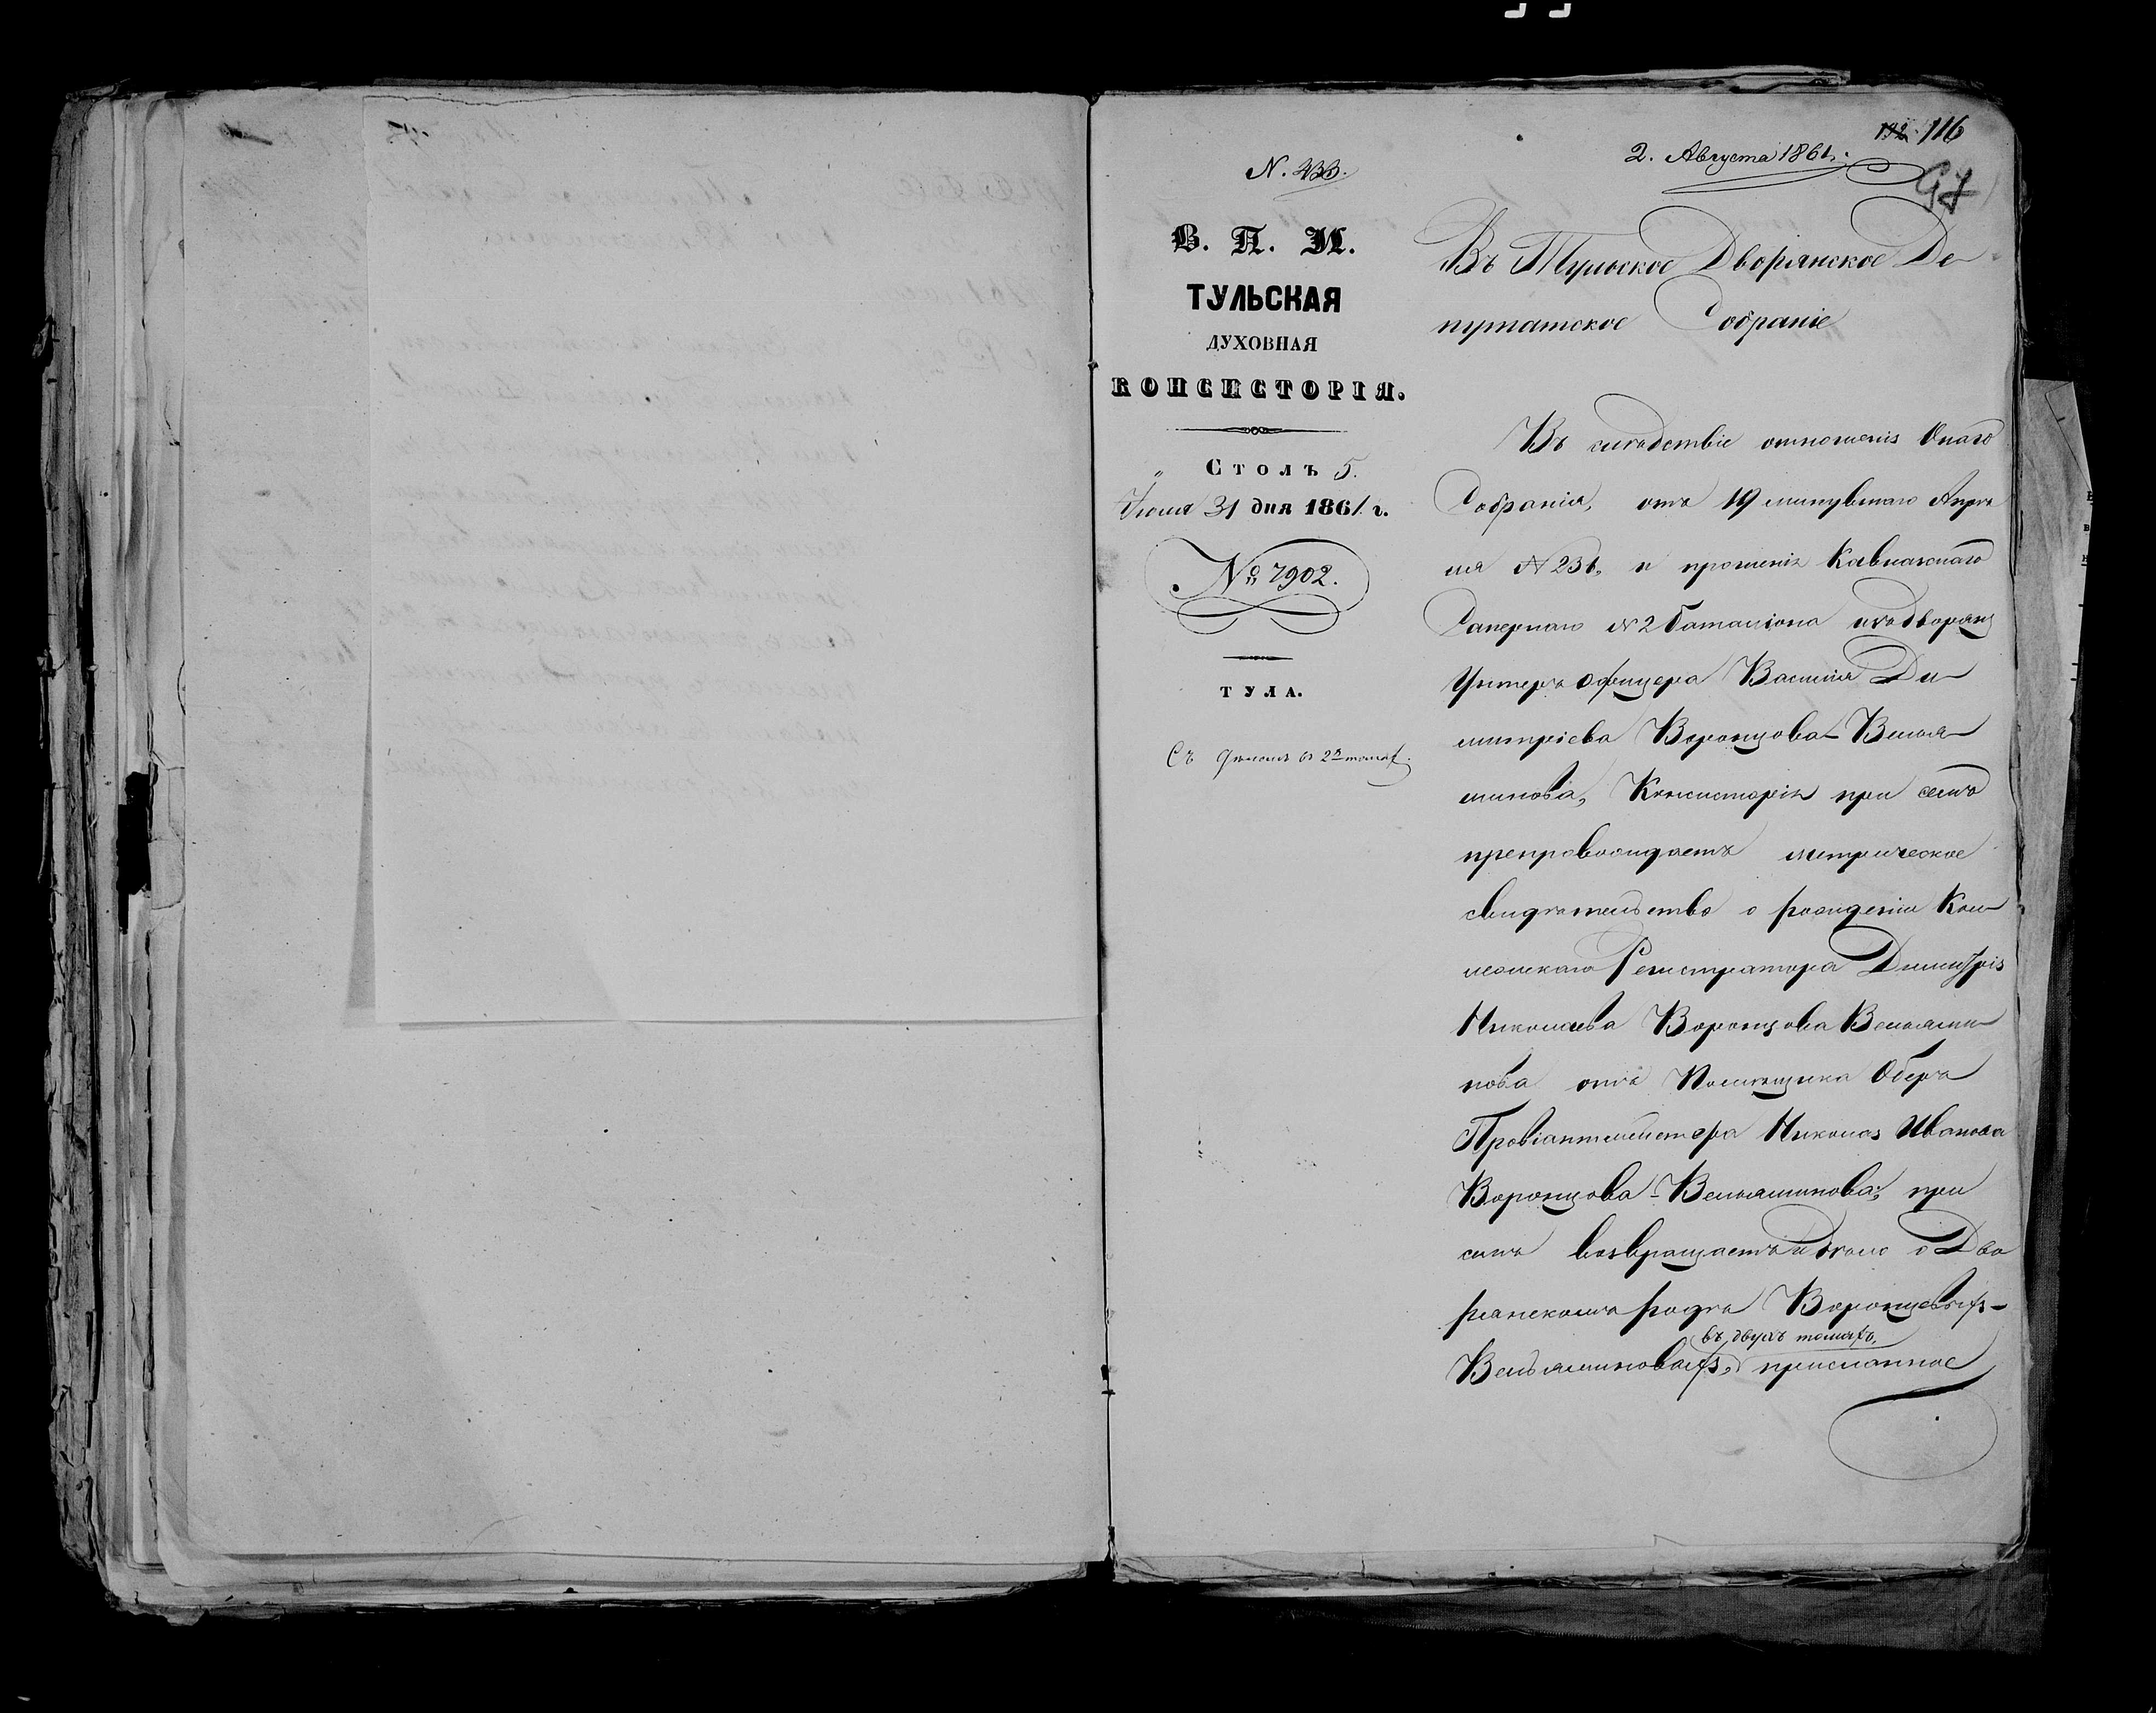 192. 116
2. Августа 1861.
N. 433.
97
В. П. И.
ТУЛЬСКАЯ
ДУХОВНАЯ
КОНСИСТОРІЯ.
Столъ 5.
Іюля 31 дня 1861 г.
№ 7902.
ТУЛА.
Съ дѣломъ въ 2хъ томах.
Въ Тульское Дворянское Де-
путатское Собраніе
Въ слѣдствіе отношенія Онаго
Собранія, отъ 19 минувшаго Апрѣ
ля № 231, и прошенія Кавказскаго
Сапернаго № 2 баталіона изъ дворянъ
Унтеръ офицера Василія Ди-
митріева Воронцова-Вельяминова
минова, Консисторія при семъ
препровождаетъ метрическое
свидѣтельство о рожденіи Кол-
лежскаго Регистратора Димитрія
Николаева Воронцова Вельями-
нова отъ Помѣщика Оберъ
Провіантмейстера Николая Иванова
Воронцова-Вельяминова; при
чемъ возвращаетъ и дѣло о Дво
рянскомъ родѣ Воронцовыхъ-
въ двухъ томахъ,
Вельяминовыхъ, присланное